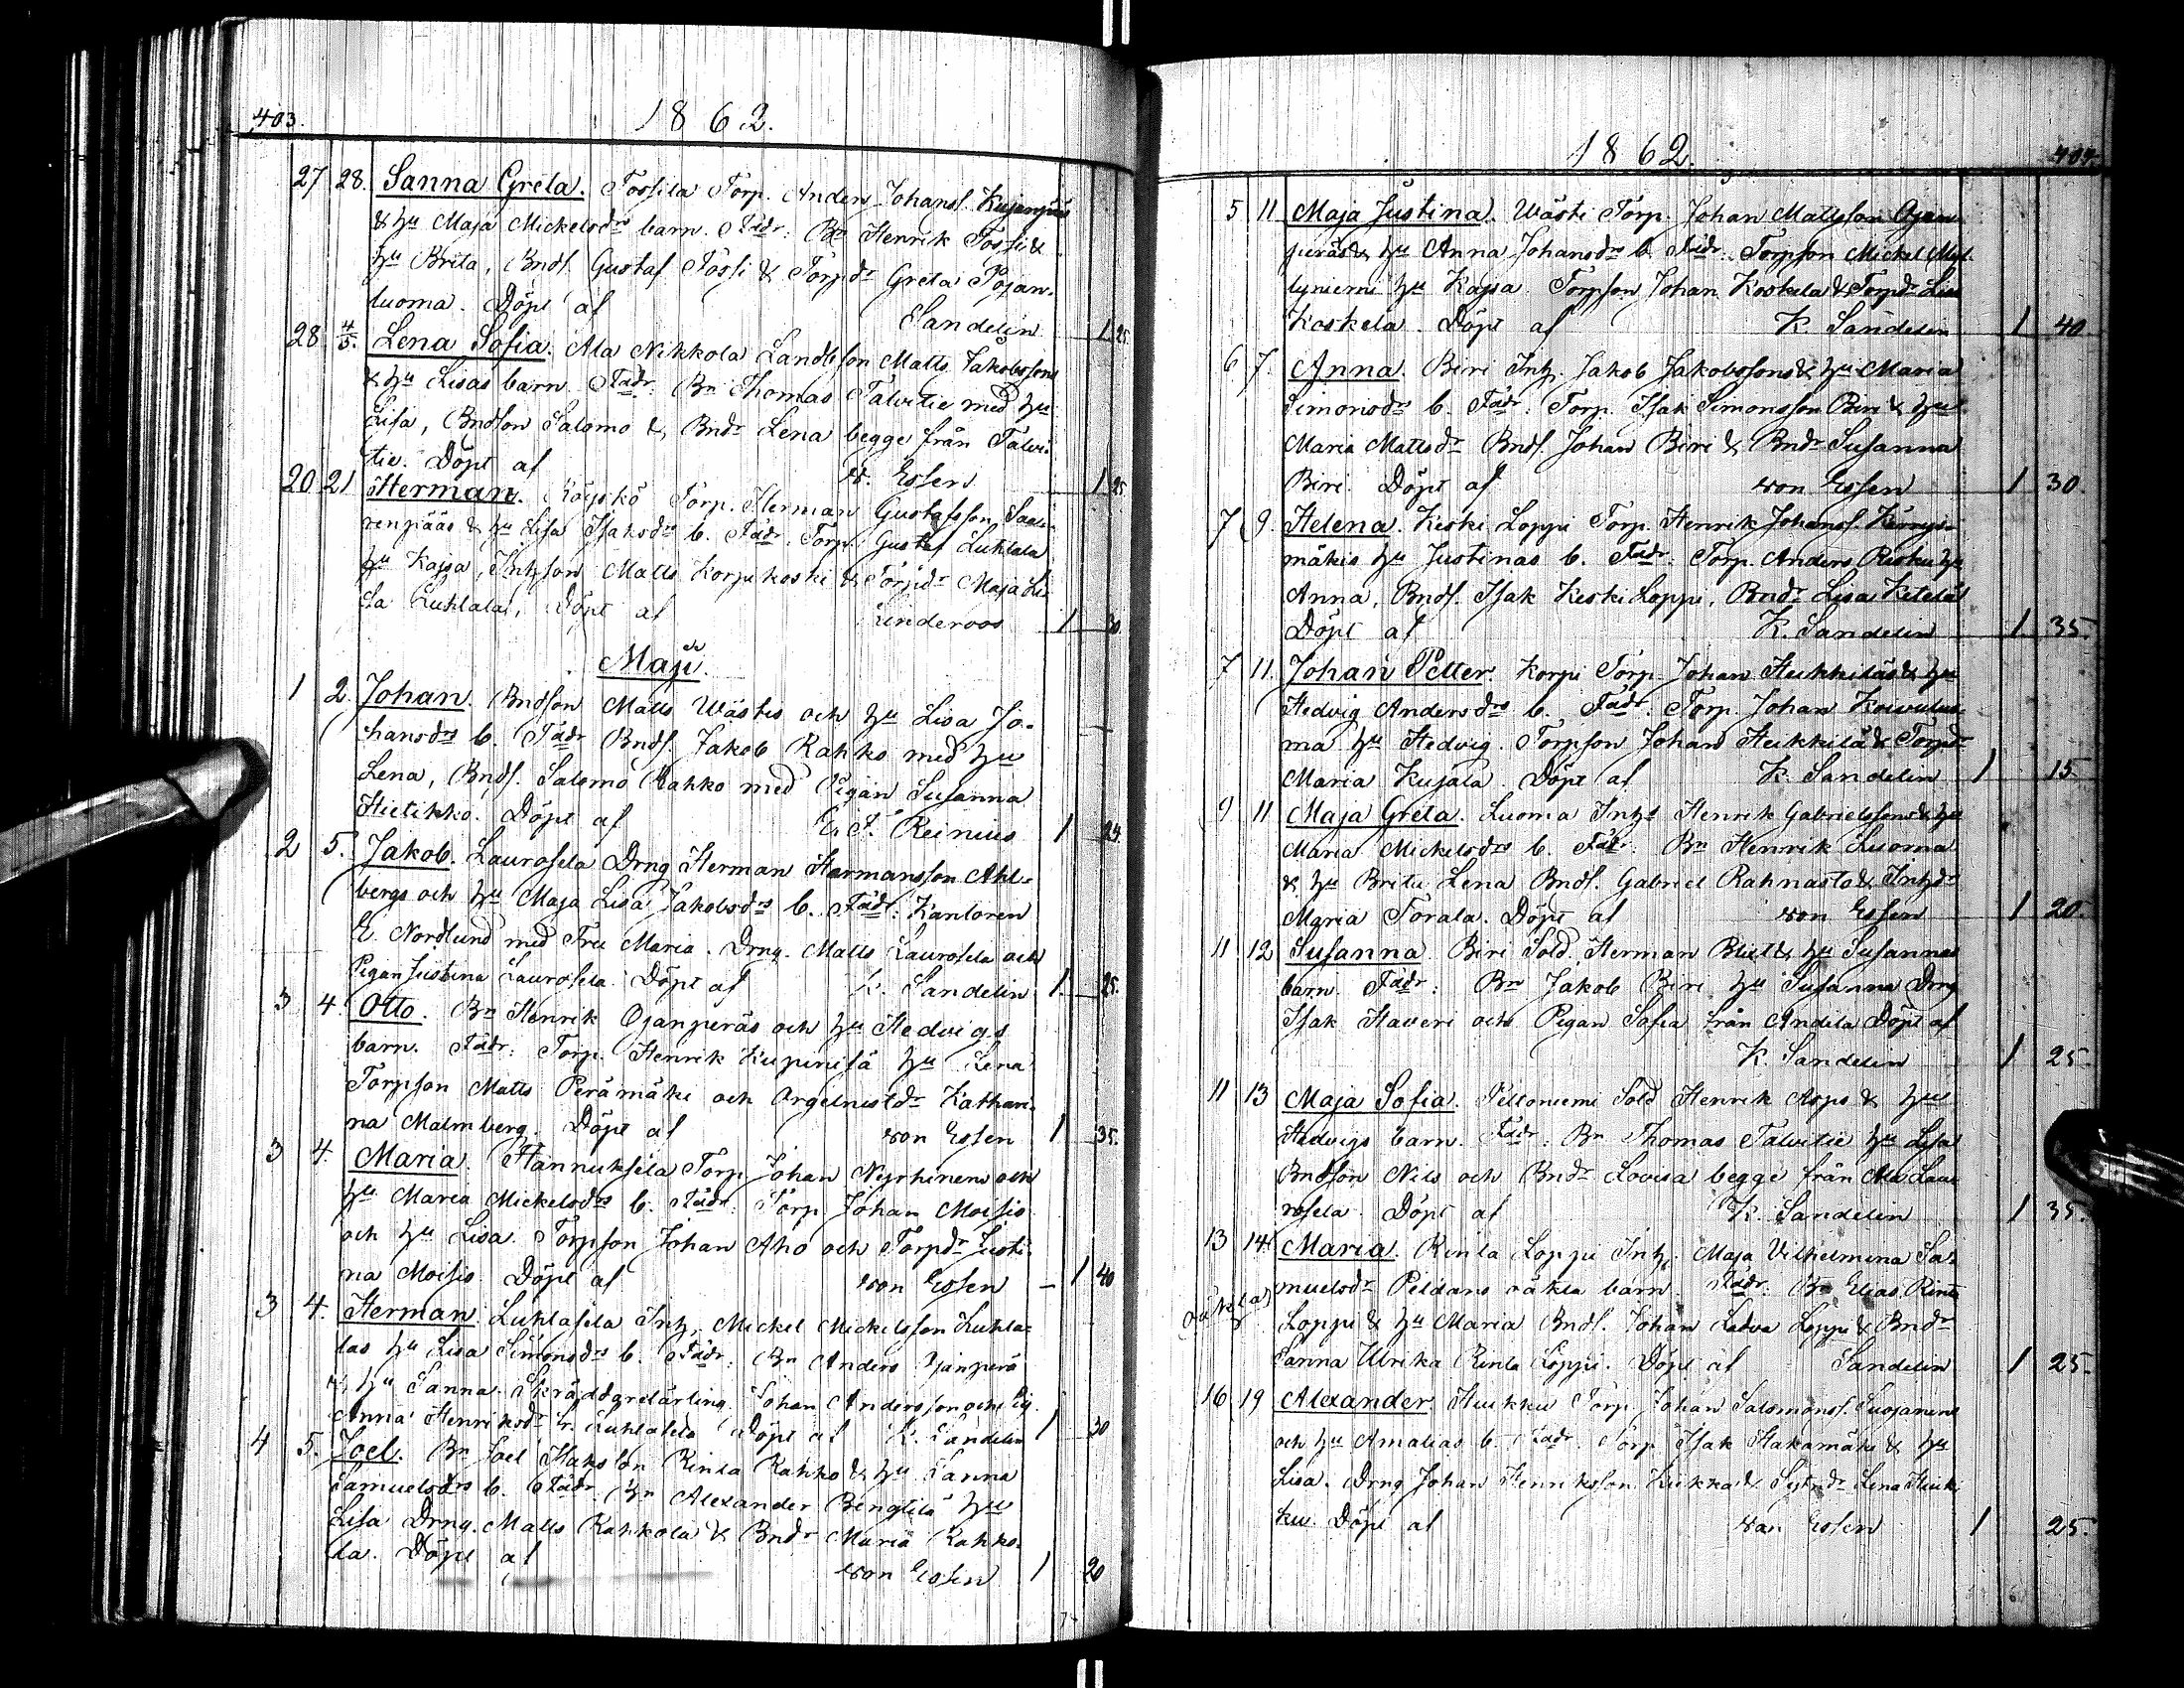 403.
1862.
27 28. Sanna Greta. Tossila Torp. Anders Johanss. Kujanpääs
& hu Maja Mickelsdrs barn. Fadr: Bn Henrik Tossi &
hu Brita, Bnds. Gustaf Tossi & Torpdr Greta Pojan-
luoma. Döpt af Sandelin 1 25.
28 4/5. Lena Sofia. Ala Nikkola Landb. son Matts Jakobssons
& hu Lisas barn. Fadr: Bn Thomas Talvitie med hu
Lisa, Bndson Salomo & Bndr Lena begge från Talvi-
tie. Döpt af v. Essen 1 25
20 21 Herman. Köyskö Torp. Herman Gustafsson
& hu Lisa Isaksdrs b. Fadr. Torp. Gustaf Luhtala
hu Kajsa, Inhson Matts Korpikoski & Torpdr Maja Li-
sa Luhtala, Döpt af Linderoos 1 30.
Maji.
1 2. Johan. Bndson Matts Wästis och hu Lisa Jo-
hansdrs b. Fadr Bnds. Jakob Rahko med hu
Lena, Bnds. Salomo Rahko med Pigan Susanna
Hietikko. Döpt af E. F. Reinius 1 24.
2 5. Jakob. Laurosela Drng Herman Harmansson Ahl-
bergs och hu Maja Lisa Jakobsdrs b. Fadr: Kantoren
E. Nordlund med Fru Maria. Drng. Matts Laurosela och
Pigan Justina Laurosela. Döpt af K. Sandelin 1. 25.
3 4. Otto. Bn Henrik Ojanperäs och hu Hedvigs
barn. Fadr: Torp. Henrik Kupinisä hu Lena
Torpson Matts Perämäki och Orgelnistdr Kathari-
na Malmberg. Döpt af von Essen 1 35.
3 4. Maria. Hannuksela Torp. Johan Nyrhinens och
hu Maria Mickelsdrs b. Fadr: Torp Johan Moisio
och hu Lisa. Torpson Johan Aho och Torpdr Justi-
na Moisio. Döpt af von Essen 1 40
3 4. Herman. Luhtasela Inh. Mickel Mickelsson Luhta-
las hu Lisa Simonsdrs b. Fadr: Bn Anders Ojanperä
& hu Sanna. Skräddarelärling Johan Andersson och Pig.
Anna Henriksdr fr. Luhtasela Döpt af K. Sandelin 1 30
4 5. Joel. Bn Joel Isaksson Rinta Rahko & hu Sanna
Samuelsdrs b. Fadr. Bn Alexander Bengtilä hu
Lisa Drng. Matts Rahkola & Bndr Maria Rahko-
la. Döpt af von Essen 1 20
1862.
404.
5 11. Maja Justina. Wästi Torp. Johan Mattsson Ojan-
peräs & hu Anna Johansdrs b. Fadr: Torpson Mickel Myl-
lyniemi hu Kajsa. Torpson Johan Koskela & Torpdr Lisa
Koskela. Döpt af K. Sandelin 1 40.
6 7. Anna. Biri Inh. Jakob Jakobssons & hu Maria
Simonsdrs b. Fadr: Torp. Isak Simonsson Biri & hu
Maria Mattsdr Bnds. Johan Biri & Bndr Susanna
Biri. Döpt af von Essen 1 30.
7 9. Helena. Keski Loppi Torp. Henrik Johanss.
mäkis hu Justinas b. Fadr. Torp. Anders Risku hu
Anna, Bnds. Isak Keski Loppi, Bndr Lisa Ketelä
Döpt af K. Sandelin 1. 35.
7 11. Johan Petter. Korpi Torp. Johan Heikkiläs & hu
Hedvig Andersdrs b. Fadr. Torp. Johan Koivuluo-
ma hu Hedvig. Torpson Johan Heikkilä & Torpdr
Maria Kujala. Döpt af K. Sandelin 1 15
9 11 Maja Greta. Luoma Inhs Henrik Gabrielssons & hu
Maria Mickelsdrs b. Fadr: Bn Henrik Luoma
& hu Brita Lena Bnds. Gabriel Rahnasto & Inhdr
Maria Torala. Döpt af von Essen 1 20.
11 12 Susanna. Biri Sold. Herman Blixt & hu Susannas
barn. Fadr: Bn Jakob Biri hu Susanna Drng
Isak Haveri och Pigan Sofia från Andila Döpt af
K. Sandelin 1 25.
11 13 Maja Sofia. Peltoniemi Sold Henrik Asps & hu
Hedvigs barn. Fadr: Bn Thomas Talvitie hu Lisa
Bndson Nils och Bndr Lovisa begge från Ala Lau-
rosela. Döpt af K. Sandelin 1 35.
13 14. Maria. Rinta Loppi Inh. Maja Vilhelmina Sa-
muelsdr Peldans oäkta barn. Fadr: Bn Elias Rinta
oäkta
Loppi & hu Maria Bnds. Johan Ladva Loppi & Bndr
Sanna Ulrika Rinta Loppi. Döpt af Sandelin 1 25.
16 19 Alexander. Huikku Torp. Johan Salomonss. Luojanens
och hu Amalias b. Fadr. Torp Isak Hakamäki & hu
Lisa. Drng Johan Henriksson & Lena Huik-
ku. Döpt af von Essen 1 25.